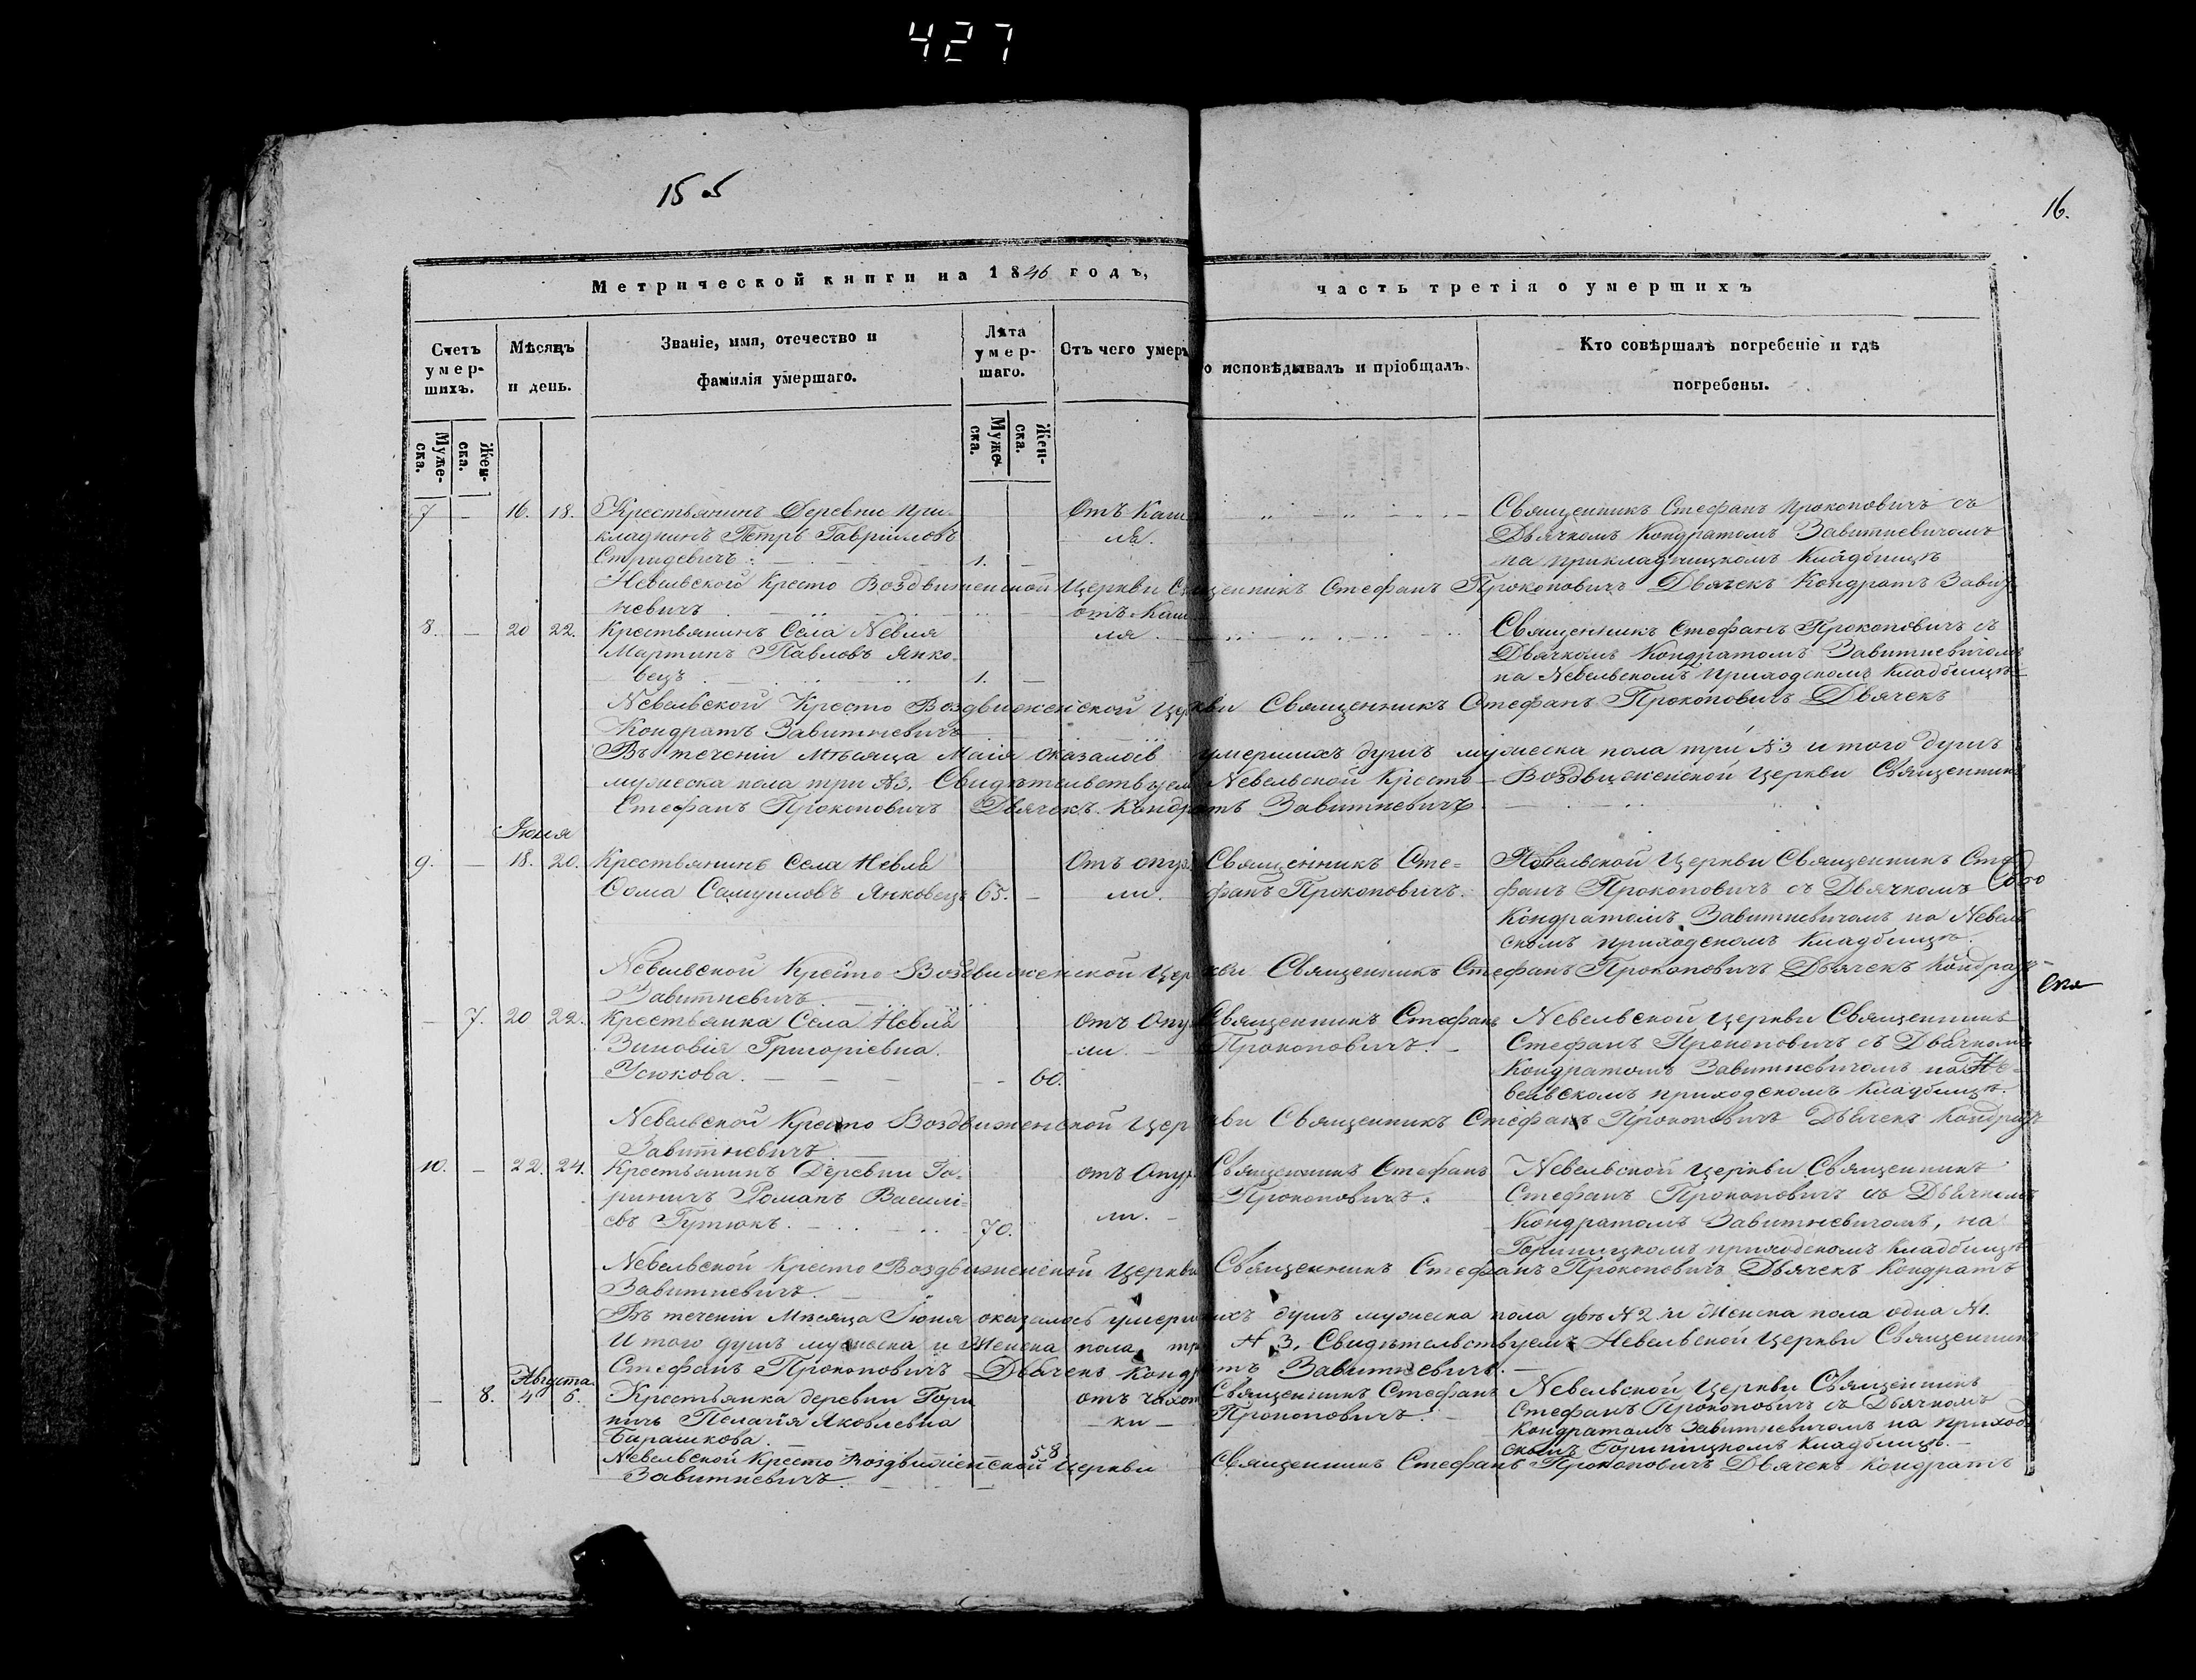 427
15 5
16.
Метрической книги на 1846 годъ, часть третія о умершихъ
Счетъ умершихъ.
Мѣсяцъ и день.
Званіе, имя, отечество и фамилія умершаго.
Лѣта умершаго.
Отъ чего умеръ
о исповѣдывалъ и пріобщалъ.
Кто совѣршалъ погребеніе и гдѣ погребены.
Мужеска. Женска.
Мужеска. Женска.
7 — 16. 18. Крестьянинъ Деревни При-
кладникъ Петръ Гавріиловъ
Стридевичъ 1. —
Отъ Каш
ля.
Священникъ Стефанъ Прокоповичъ съ
Дьячкомъ Кондратомъ Завитневичомъ
на прикладницкомъ кладбищѣ
Невельского Кресто Воздвиженской Церкви Священникъ Стефанъ Прокоповичъ Дьячекъ Кондратъ Завит
невичъ
8. — 20 22. Крестьянинъ Села Невля
Мартинъ Павловъ Янко-
вецъ 1. —
отъ Каш
ля
Священникъ Стефанъ Прокоповичъ съ
Дьячкомъ Кондратомъ Завитневичомъ
на Невельскомъ приходскомъ кладбищѣ
Невельской Кресто Воздвиженской Церкви Священникъ Стефанъ Прокоповичъ Дьячекъ
Кондратъ Завитневичъ
Въ теченіи Мѣсяца Маія оказалось умершихъ душъ мужеска пола три №3 итого душъ
мужеска пола три №3. Свидѣтельствуемъ Невельской Кресто-Воздвиженской Церкви Священникъ
Стефанъ Прокоповичъ Дьячекъ Кондратъ Завитневичъ
Іюня
9. — 18. 20. Крестьянинъ Села Невля
Ѳома Самуиловъ Янковецъ 65. —
Отъ опух
ли.
Священникъ Сте=
фанъ Прокоповичъ.
Невельской Церкви Священникъ Сте
фанъ Прокоповичъ съ Дьячкомъ
Кондратомъ Завитневичомъ на Невель
скомъ приходскомъ кладбищѣ.
Невельской Кресто Воздвиженской Церкви Священникъ Стефанъ Прокоповичъ Дьячекъ Кондратъ
Завитневичъ
— 7. 20 22. Крестьянка Села Невля
Зиновія Григоріевна
Усюкова. 60.
отъ Опух
ли.
Священникъ Стефанъ
Прокоповичъ.
Невельской Церкви Священникъ
Стефанъ Прокоповичъ съ Дьячкомъ
Кондратомъ Завитневичомъ на Не-
вельскомъ приходскомъ кладбищѣ.
Невельской Кресто Воздвиженской Церкви Священникъ Стефанъ Прокоповичъ Дьячекъ Кондратъ
Завитневичъ
10. — 22. 24. Крестьянинъ Деревни Го-
риничъ Романъ Василі-
евъ Гутюкъ. 70.
отъ Опух
ли.
Священникъ Стефанъ
Прокоповичъ.
Невельской Церкви Священникъ
Стефанъ Прокоповичъ съ Дьячкомъ
Кондратомъ Завитневичомъ, на
Гориницкомъ приходскомъ кладбищѣ
Невельской Кресто Воздвиженской Церкви Священникъ Стефанъ Прокоповичъ Дьячекъ Кондратъ
Завитневичъ.
Въ теченіи Мѣсяца Іюня оказалось умершихъ душъ мужеска пола двѣ №2 и Женска пола одна №1.
Итого душъ мужеска и Женска пола три №3. Свидѣтельствуемъ Невельской Церкви Священникъ
Стефанъ Прокоповичъ Дьячекъ Кондратъ Завитневичъ.
Августа.
— 8. 4 6. Крестьянка деревни Гори
ничъ Пелагія Яковлевна
Барашкова. 58
отъ чахот
ки —
Священникъ Стефанъ
Прокоповичъ.
Невельской Церкви Священникъ
Стефанъ Прокоповичъ съ Дьячкомъ
Кондратомъ Завитневичомъ на приход
скомъ Гориницкомъ кладбищѣ.
Невельской Кресто Воздвиженской Церкви Священникъ Стефанъ Прокоповичъ Дьячекъ Кондратъ
Завитневичъ.